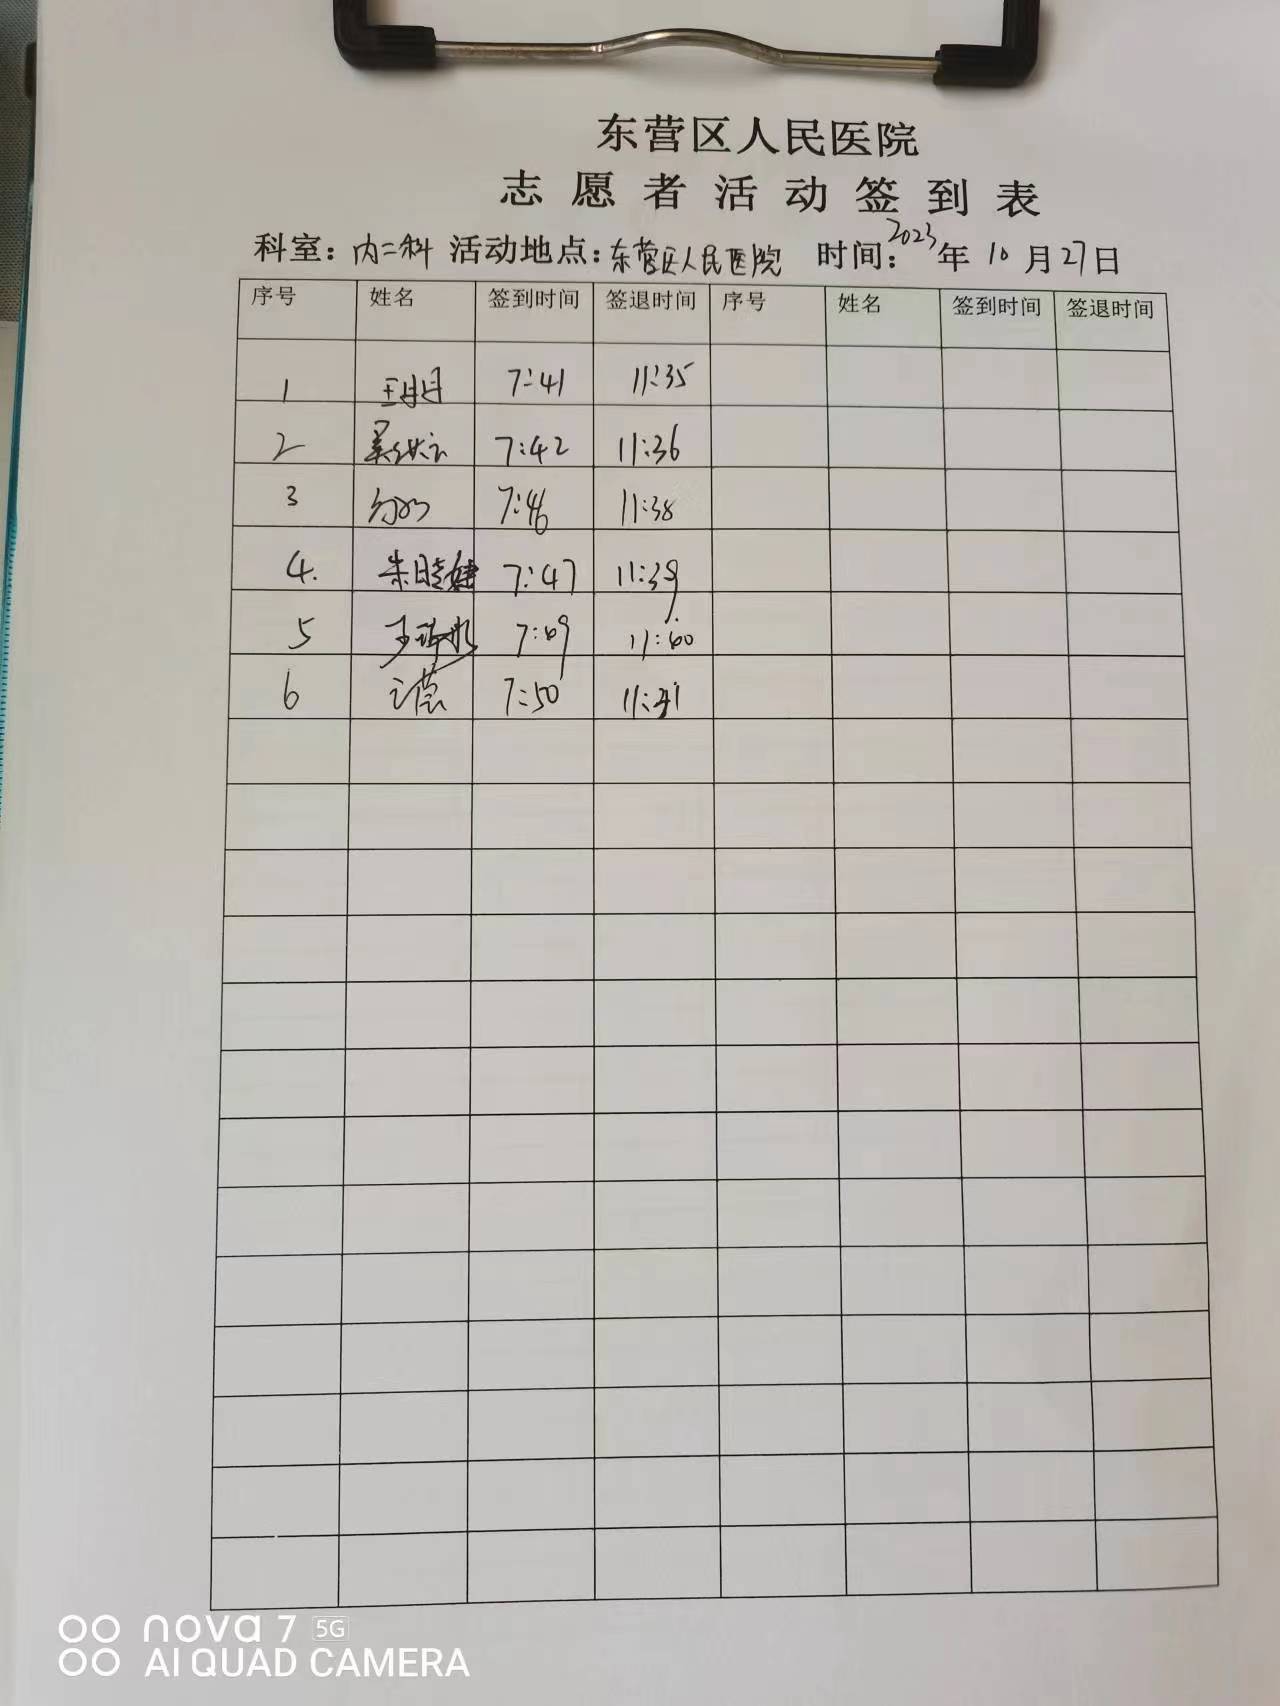 东营区人民医院
志愿者活动签到表
科室：内二科 活动地点：东营区人民医院 时间：2023年10月27日
序号 姓名 签到时间 签退时间 序号 姓名 签到时间 签退时间
1 王月月 7:41 11:35
2 7:42 11:36
3 7:46 11:38
4. 朱晓婕 7:47 11:39
5 7:49 11:40
6 7:50 11:41
nova 7 5G
AI QUAD CAMERA